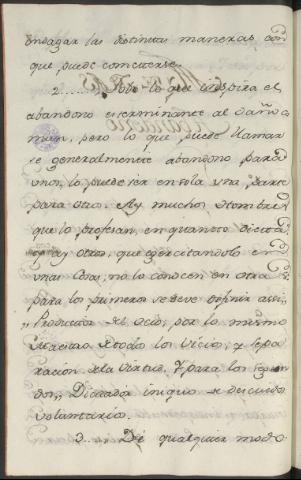 indagar las distintas maneras con
que puede cometerse.
2......... Todo lo que inspira el
abandono es terminante al daño co
mun, pero lo que puede llamar
se generalmente abandono para
unos, lo puede ser en sola una parte
para otro. Ay muchos Hombres
que lo profesan, en quanto dicta
ley y otros, que egercitandolo en
unas Cosas, no lo conocen en otras
para los primeros se deve definir assi,,
,, Productor del Ocio, por lo mismo
de todo los Vicios, y sepa
racion de la Virtud, Y para los segun
dos,, Dictador iniquo de descuido
voluntario.
3...... De qualquier modo